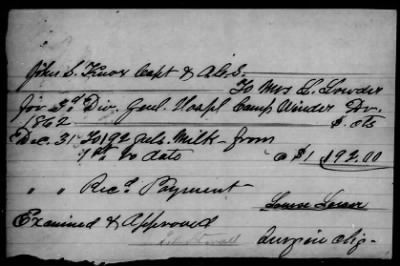 John S. Knox Capt & A.C.S.
To Mrs C. Lowder
for 3d Div. Genl. Hospl Camp Winder Dr.
1862 $. cts
Dec. 31 To 192 gals. Milk - from
1st to date a $1 192.00
" " Recd Payment
Examined & Approved
Surg in Chg -